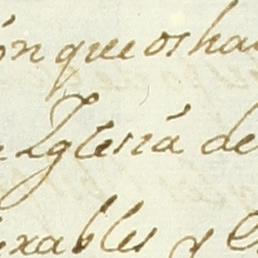 ón que os ha
Iglesiá de
xables y